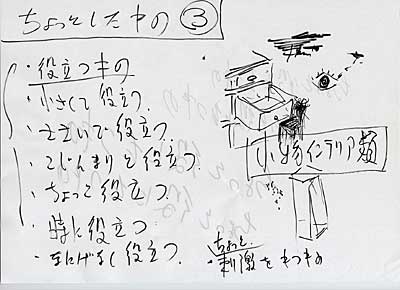 ちょっとしたもの ③
・役立つもの
・小さくて役立つ.
・ささいで役立つ.
・こじんまりと役立つ.
・ちょっと役立つ.
・時に役立つ
・まんげなく役立つ.
小物インテリア類
ちょっと.
・刺激をもつもの